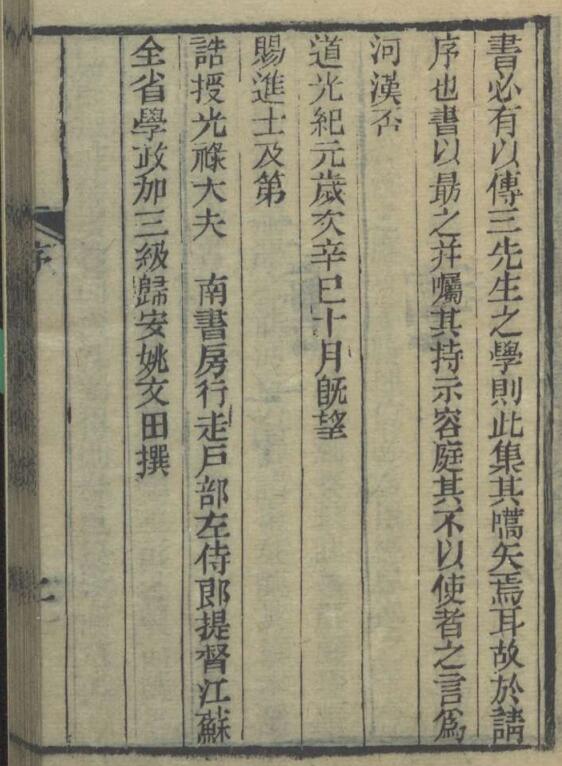 書必有以傳三先生之學則此集其嚆矢焉耳故於請
序也書以勗之并囑其持示容庭其不以使者之言爲
河漢否
道光紀元歲次辛巳十月旣望
賜進士及第
誥授光祿大夫　南書房行走戶部左侍郎提督江蘇
全省學政加三級歸安姚文田撰
序